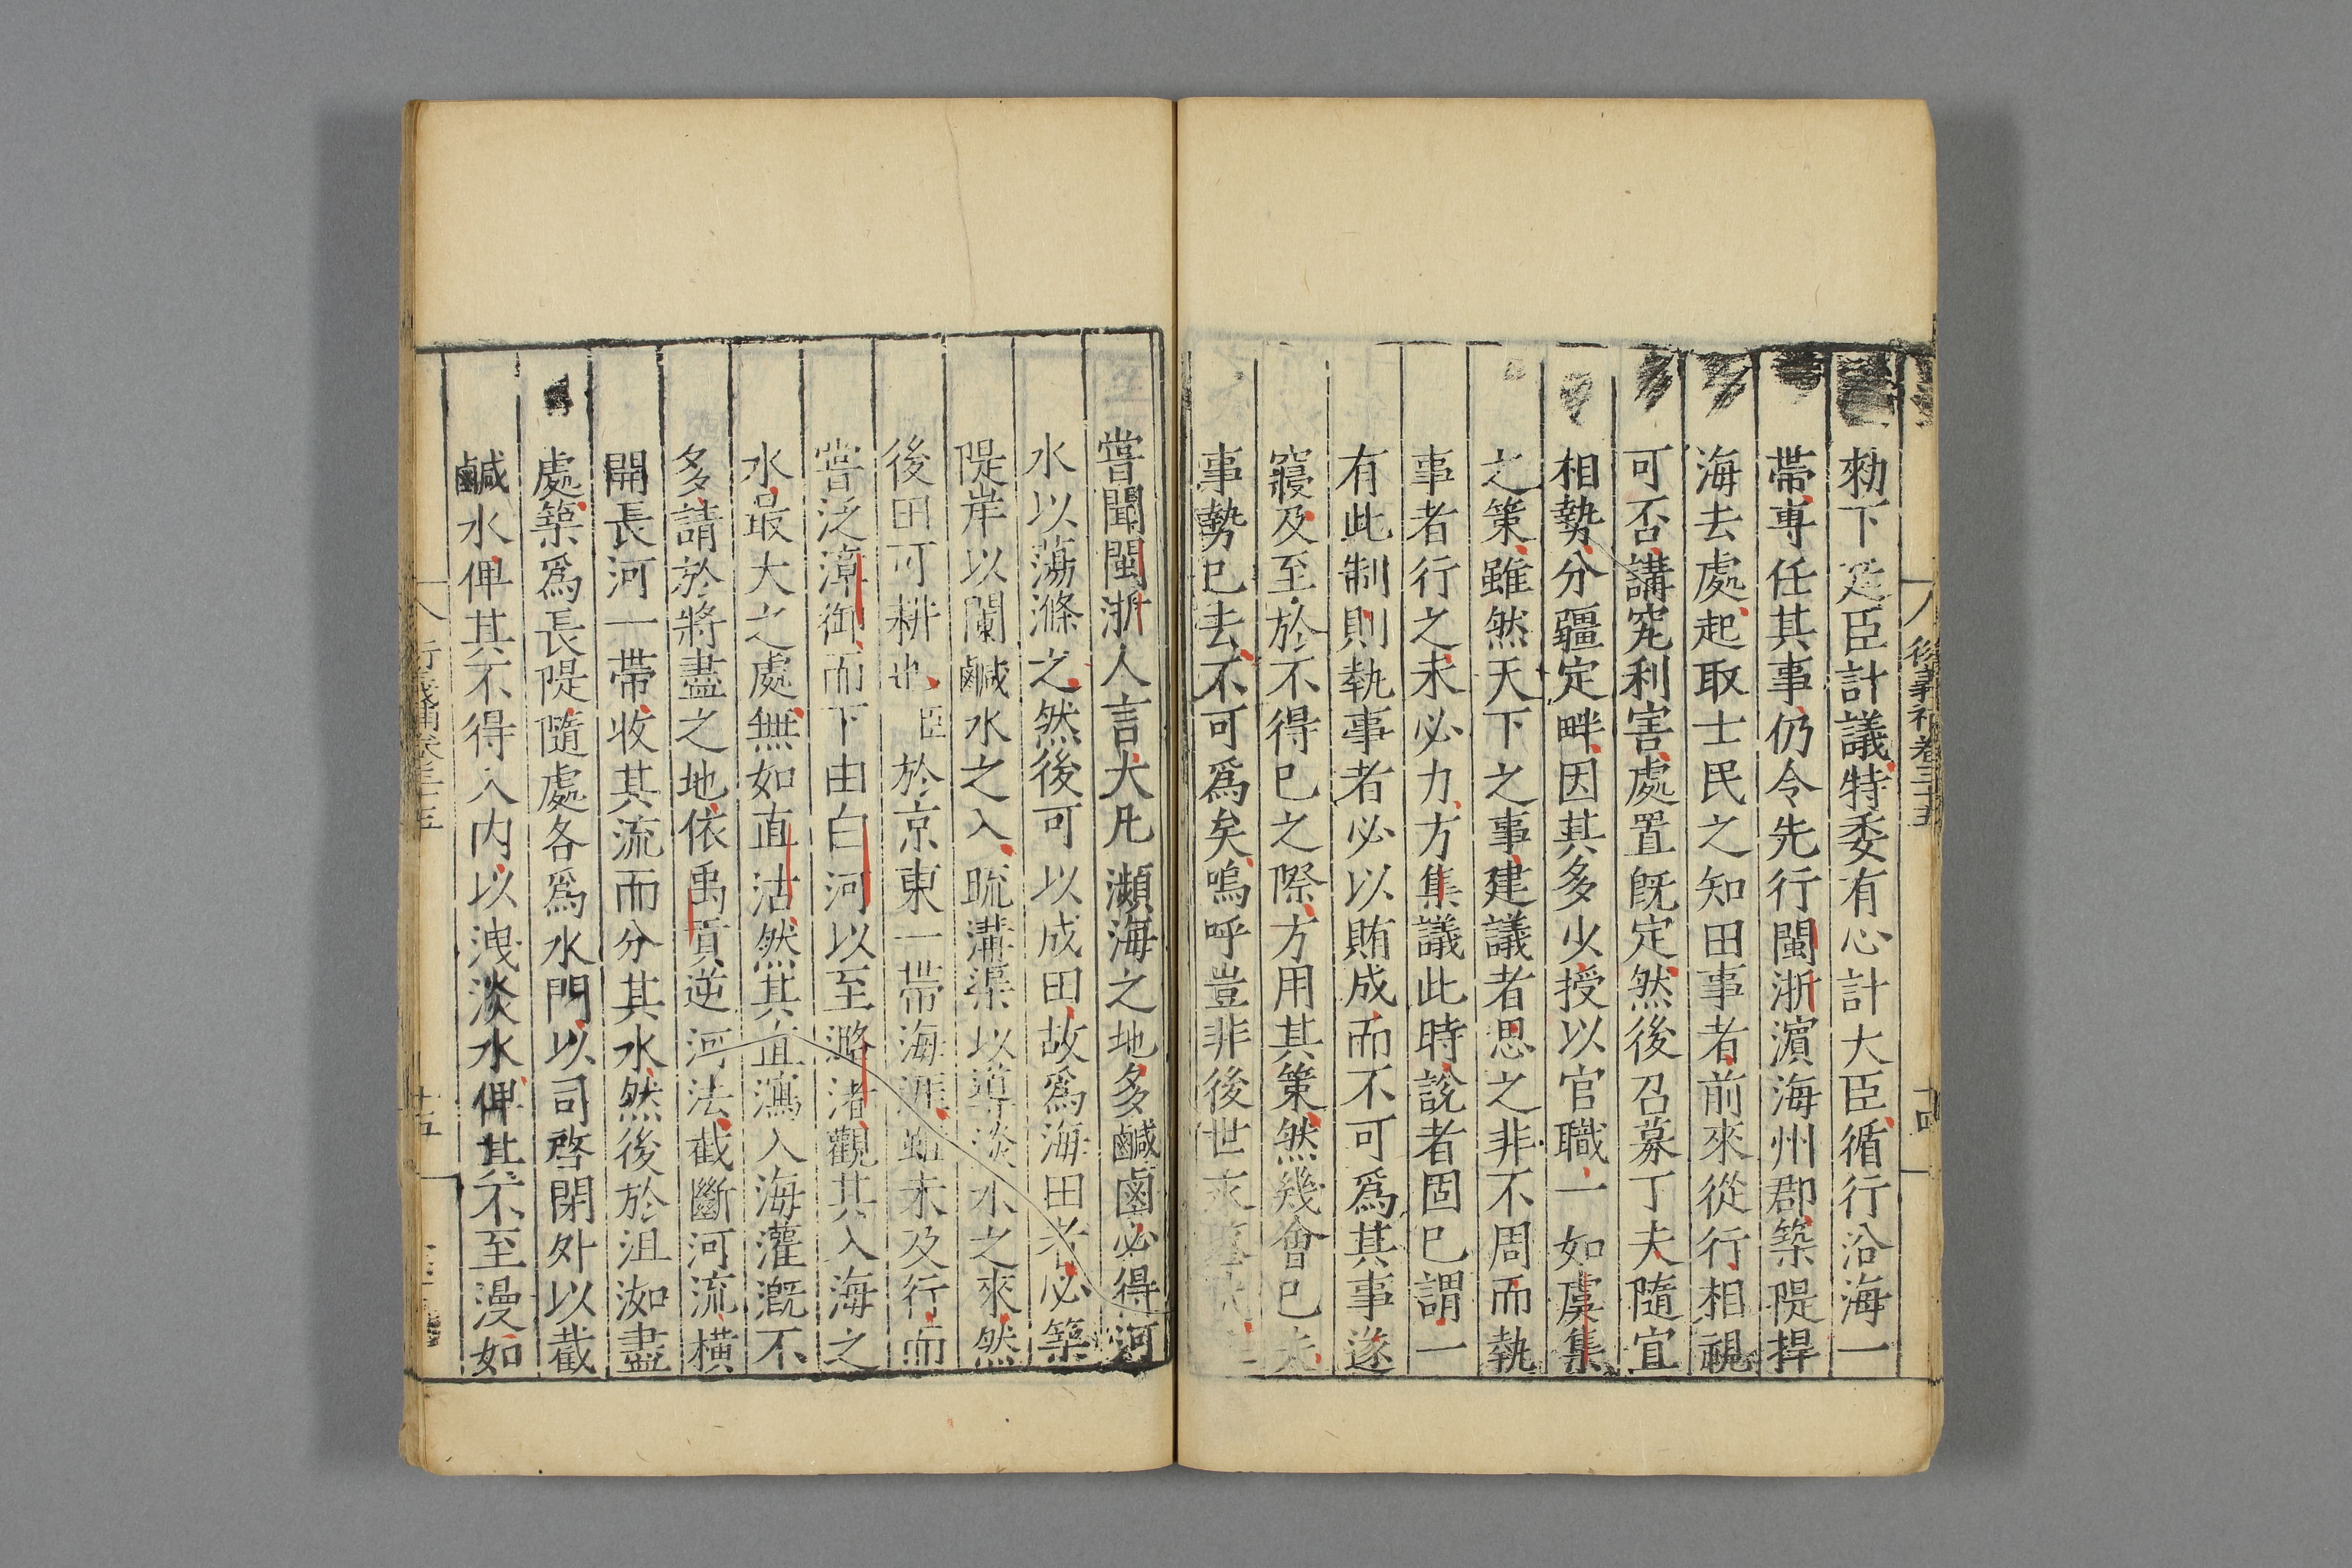 勑下廷臣計議特委有心計大臣循行沿海一
帶專任其事仍令先行閩浙濵海州郡築隄捍
海去處起取士民之知田事者前來從行相視
可否講究利害處置既定然後召募丁夫隨宜
相勢分疆定畔因其多少授以官職一如虞集
之策雖然天下之事建議者思之非不周而執
事者行之未必力方集議此時說者固已謂一
有此制則執事者必以賄成而不可爲其事遂
寢及至於不得已之際方用其策然幾會已失
事勢已去不可爲矣嗚呼豈非後世永
嘗聞閩浙人言大凡瀕海之地多鹹鹵必得河
水以蕩滌之然後可以成田故爲海田者必築
隄岸以闌鹹水之入疏溝渠以導淡水之來然
後田可耕也臣於京東一帶海涯雖未及行而
嘗泛漳御而下由白河以至潞渚觀其入海之
水最大之處無如直沽然其直瀉入海灌漑不
多請於將盡之地依禹貢逆河法截斷河流橫
開長河一帶收其流而分其水然後於沮洳盡
處築爲長隄隨處各爲水門以司啓閉外以截
鹹水俾其不得入内以洩淡水俾其不至漫如